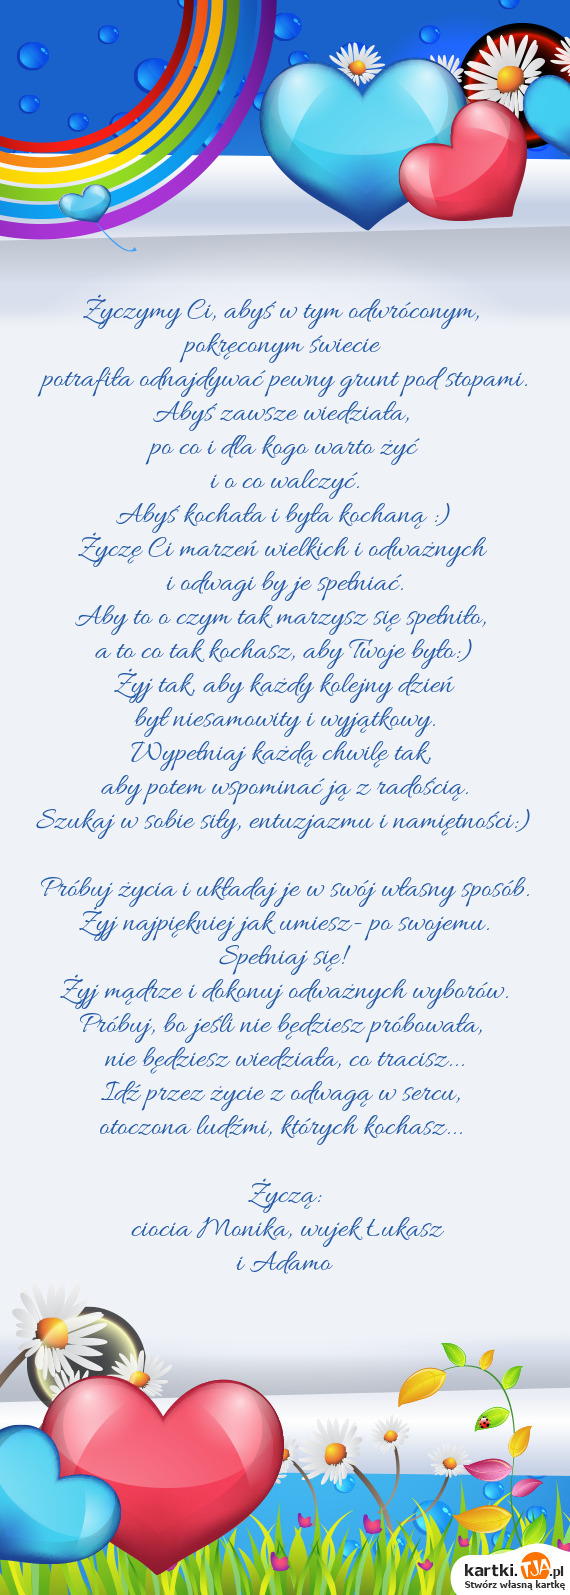 Życzymy Ci, abyś w tym odwróconym,
pokręconym świecie
potrafiła odnajdywać pewny grunt pod stopami.
Abyś zawsze wiedziała,
po co i dla kogo warto żyć
i o co walczyć.
Abyś kochała i była kochaną :)
Życzę Ci marzeń wielkich i odważnych
i odwagi by je spełniać.
Aby to o czym tak marzysz się spełniło,
a to co tak kochasz, aby Twoje było:)
Żyj tak, aby każdy kolejny dzień
był niesamowity i wyjątkowy.
Wypełniaj każdą chwilę tak,
aby potem wspominać ją z radością.
Szukaj w sobie siły, entuzjazmu i namiętności:)
Próbuj życia i układaj je w swój własny sposób.
Żyj najpiękniej jak umiesz- po swojemu.
Spełniaj się!
Żyj mądrze i dokonuj odważnych wyborów.
Próbuj, bo jeśli nie będziesz próbowała,
nie będziesz wiedziała, co tracisz...
Idź przez życie z odwagą w sercu,
otoczona ludźmi, których kochasz...
Życzą:
ciocia Monika, wujek Łukasz
i Adamo
kartki.TJA.pl
Stwórz własną kartkę